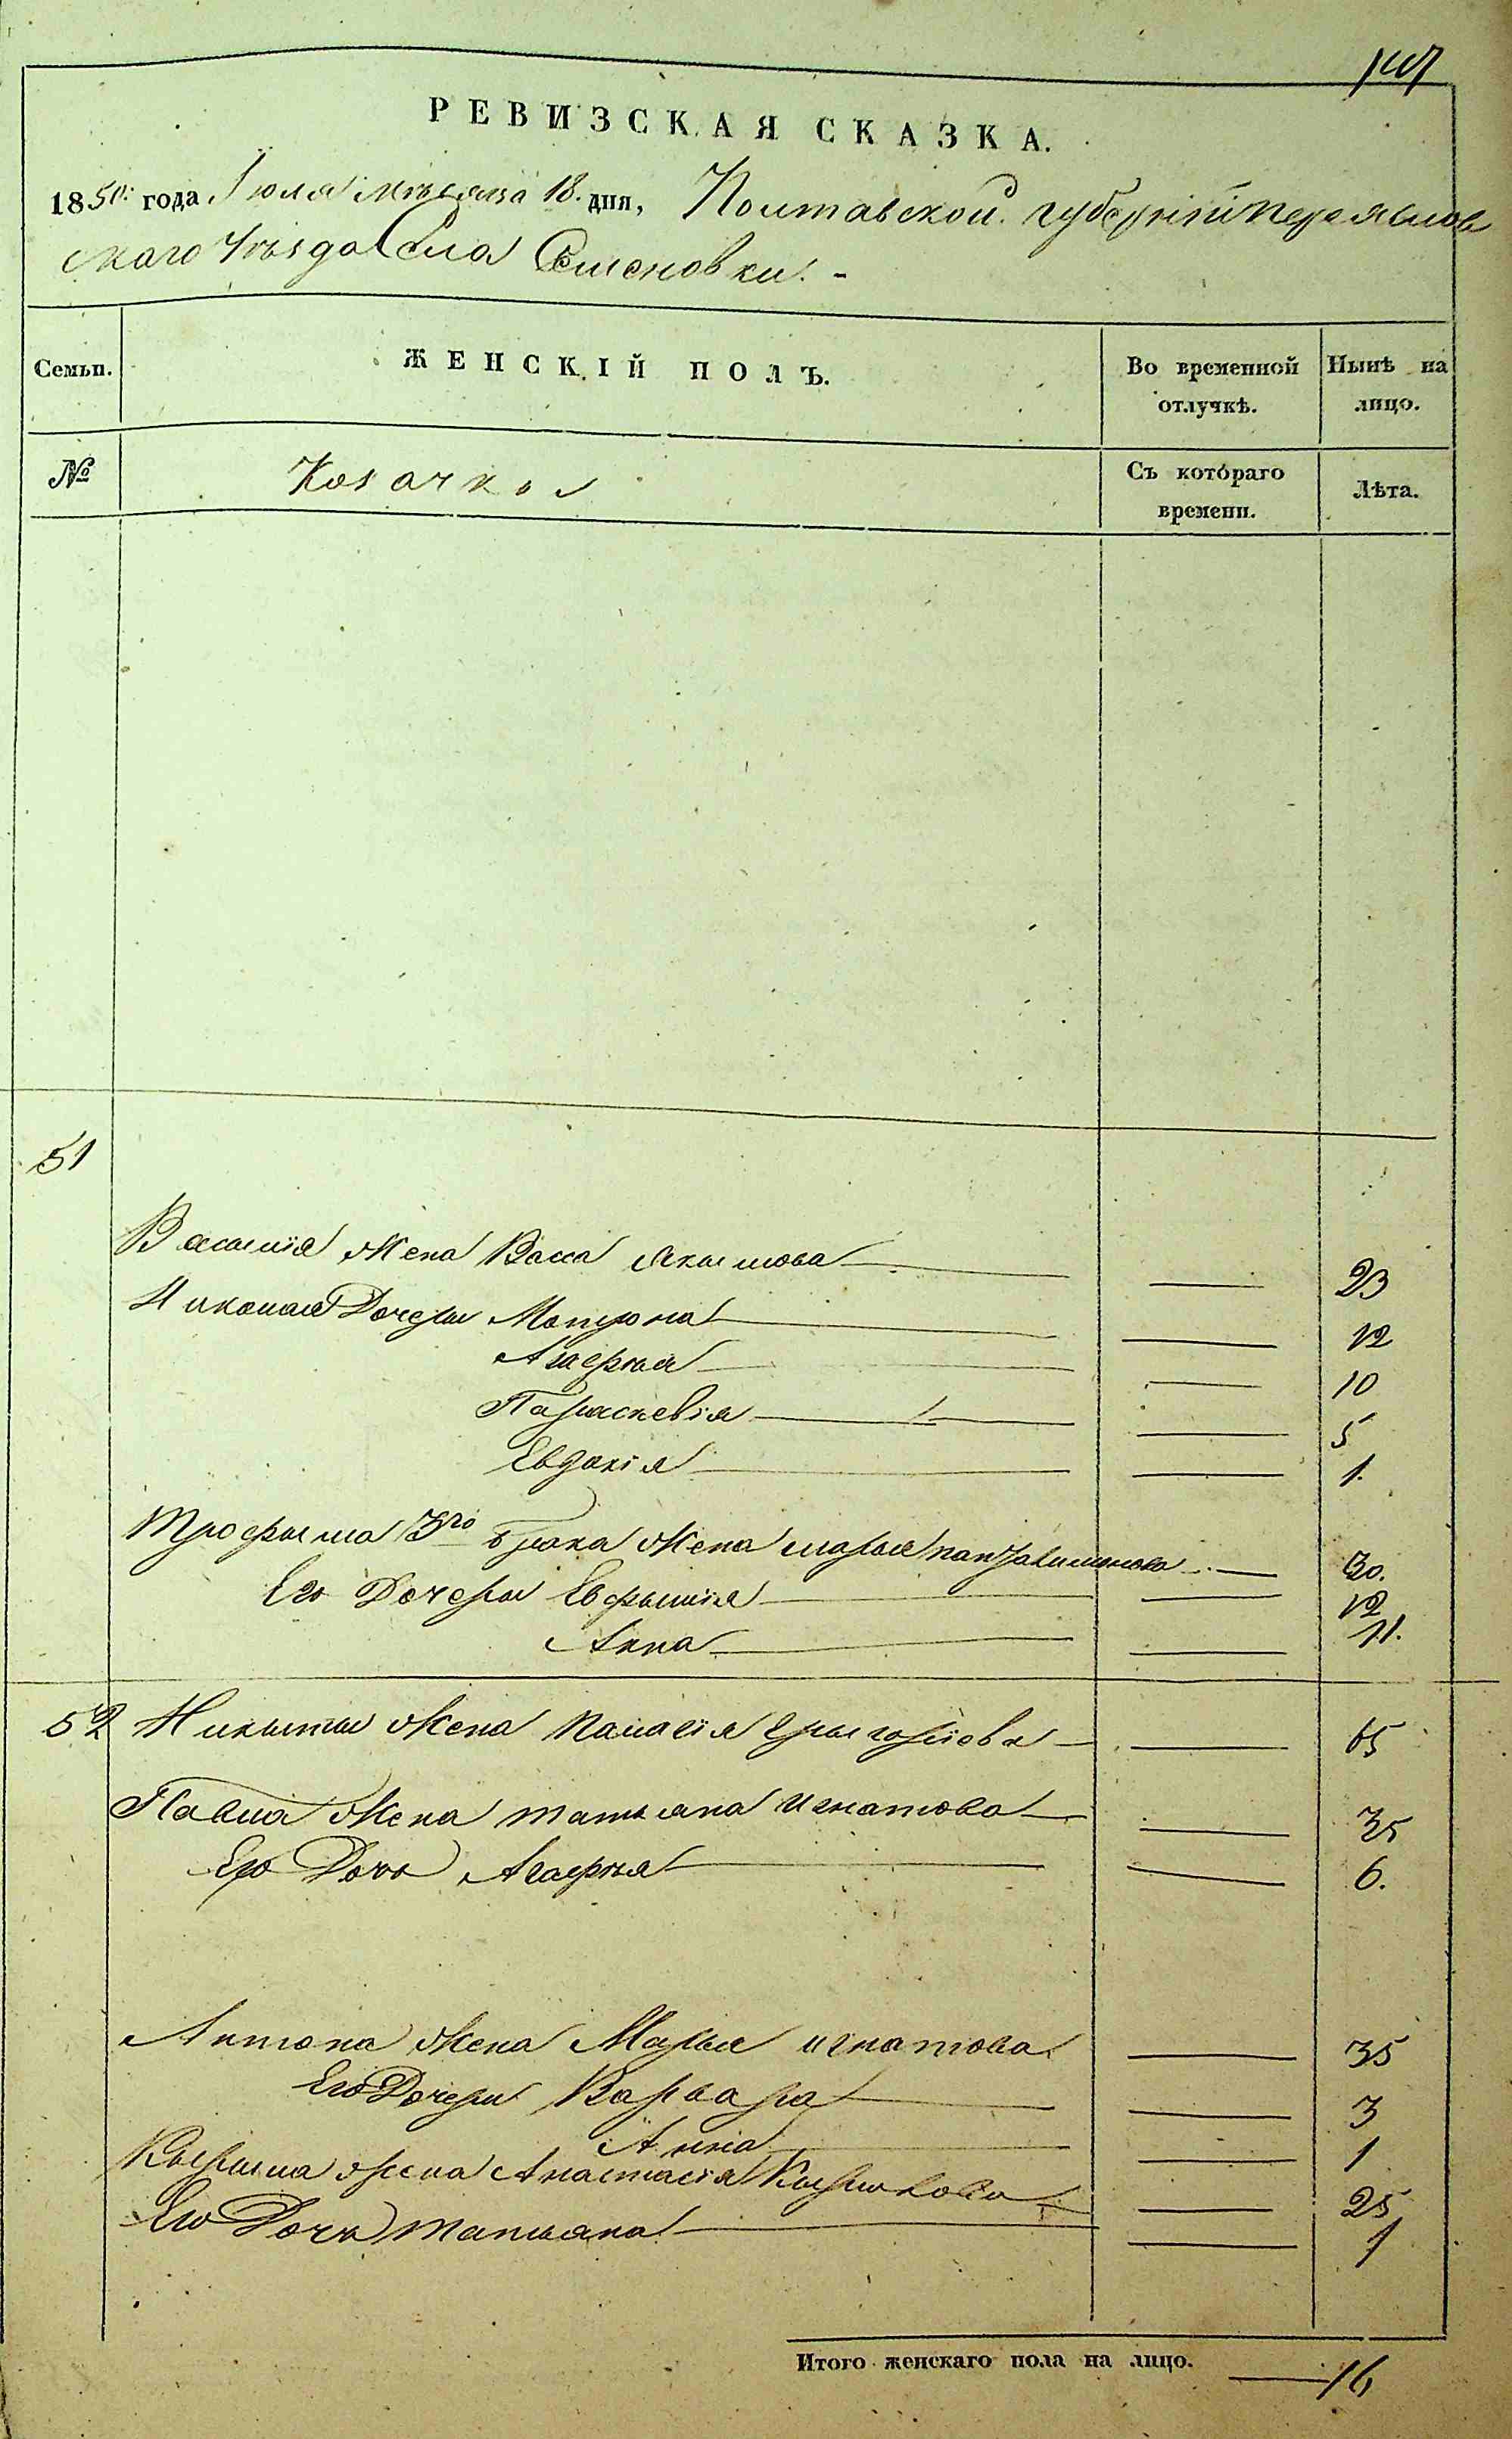 РЕВИЗСКАЯ СКАЗКА.
1850. года Іюля мѣсяца 18. дня, Полтавской губерніи Переяслов
скаго Уѣзда Села Семеновки. -
Семьи. ЖЕНСКІЙ ПОЛЪ. Во временной отлучкѣ. Нынѣ на лицо.
№ Козачков Съ котораго времени. Лѣта.
51
Василія Жена Васса Акымова 23
Николая Дочеры Мотрона 12
Агафия 10
Параскевія 5
Евдокія 1.
Трофыма 3го брака Жена Марья 30.
Его Дочеры Евфымія 12
Анна 11.
52 Никыты Жена Палагія Грыгоріева 65
Павла Жена татьяна игнатова 35
Его Дочь Агафия 6.
Антона Жена Марья игнатова 35
Его Дочеры Варвара 3
Анна 1
Кырыла Жена Анастасія Кырыкова 25
Его Дочь татьяна 1
Итого женскаго пола на лицо. 16